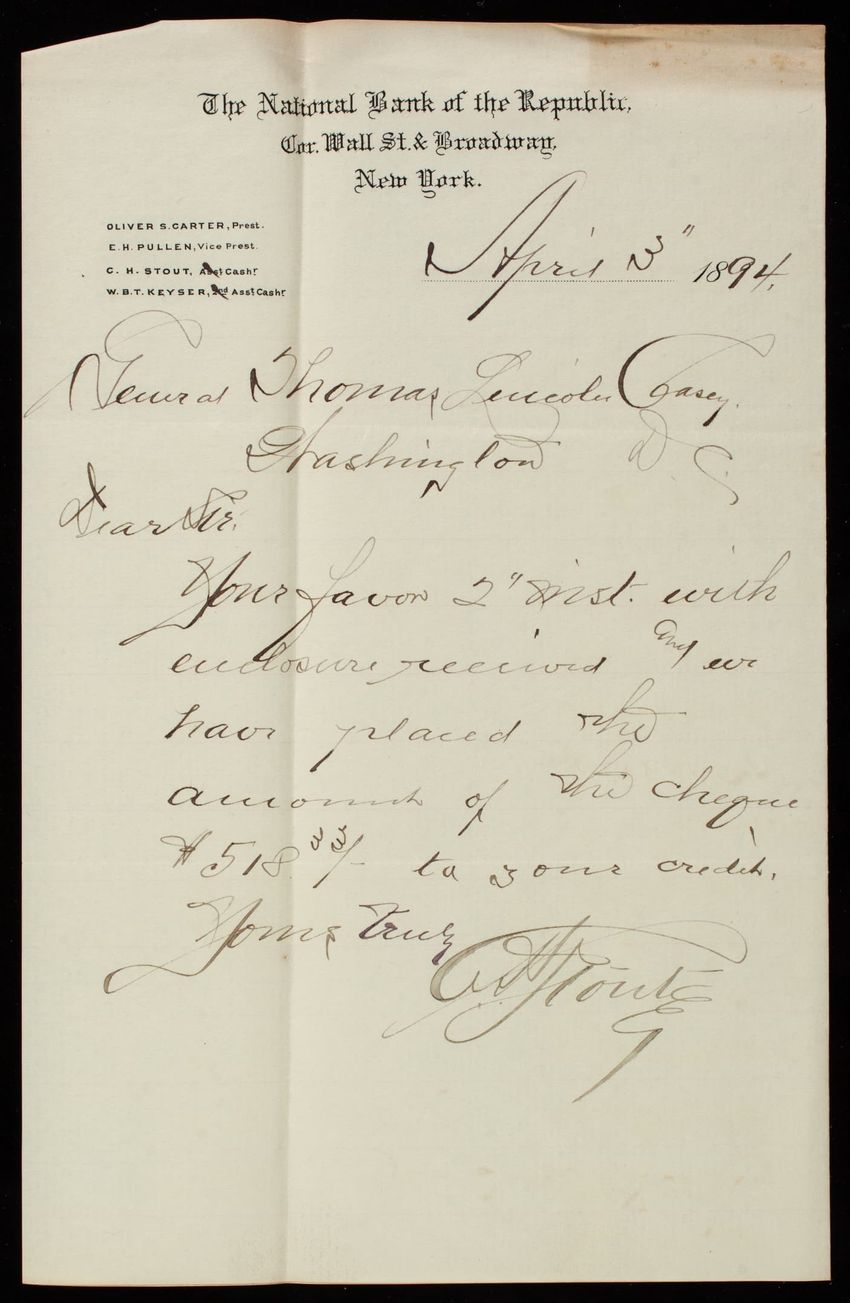 The National Bank of the Republic,
Cor. Wall St. & Broadway,
New York.
OLIVER S. CARTER, Prest.
E. H. PULLEN, Vice Prest.
C. H. STOUT, Asst Cashr
W. B. T. KEYSER, 2nd Asst Cashr
April 3" 1894.
General Thomas Lincoln Casey.
Washington D. C.
Dear Sir.
Your favor 2" inst. with
enclosure received and we
have placed the
amount of the cheque
$518.33/- to your credit.
Yours Truly
C H Stout